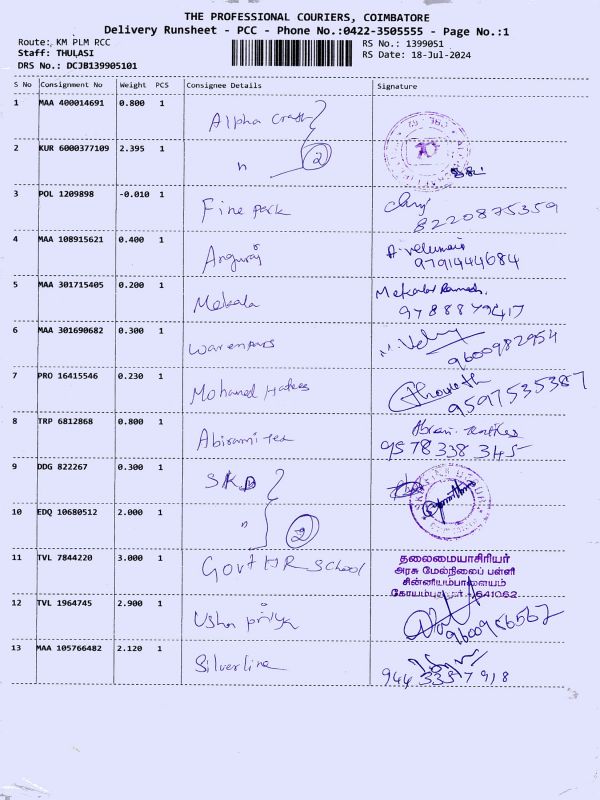 THE PROFESSIONAL COURIERS, COIMBATORE
Delivery Runsheet - PCC - Phone No.:0422-3505555 - Page No.:1
Route: KM PLM RCC
Staff: THULASI
DRS No.: DCJB139905101
RS No.: 1399051
RS Date: 18-Jul-2024
S No Consignment No Weight PCS Consignee Details Signature
1 MAA 400014691 0.800 1 Alpha Craft
2 KUR 6000377109 2.395 1 n 2
3 POL 1209898 -0.010 1 Fine park
8220875359
4 MAA 108915621 0.400 1 Anguraj A. velumani
9791444684
5 MAA 301715405 0.200 1 Mekala Mekala Ramesh.
6 MAA 301690682 0.300 1
9600982954
7 PRO 16415546 0.230 1 Mohamed
9597535387
8 TRP 6812868 0.800 1 Abirami tex
9578338345
9 DDG 822267 0.300 1 SKD
10 EDQ 10680512 2.000 1 n 2
11 TVL 7844220 3.000 1 Govt HR School
தலைமையாசிரியர்
அரசு மேல்நிலைப் பள்ளி
சின்னியம்பாளையம்
கோயம்புத்தூர் - 641062
12 TVL 1964745 2.900 1 Usha priya
13 MAA 105766482 2.120 1 Silverline